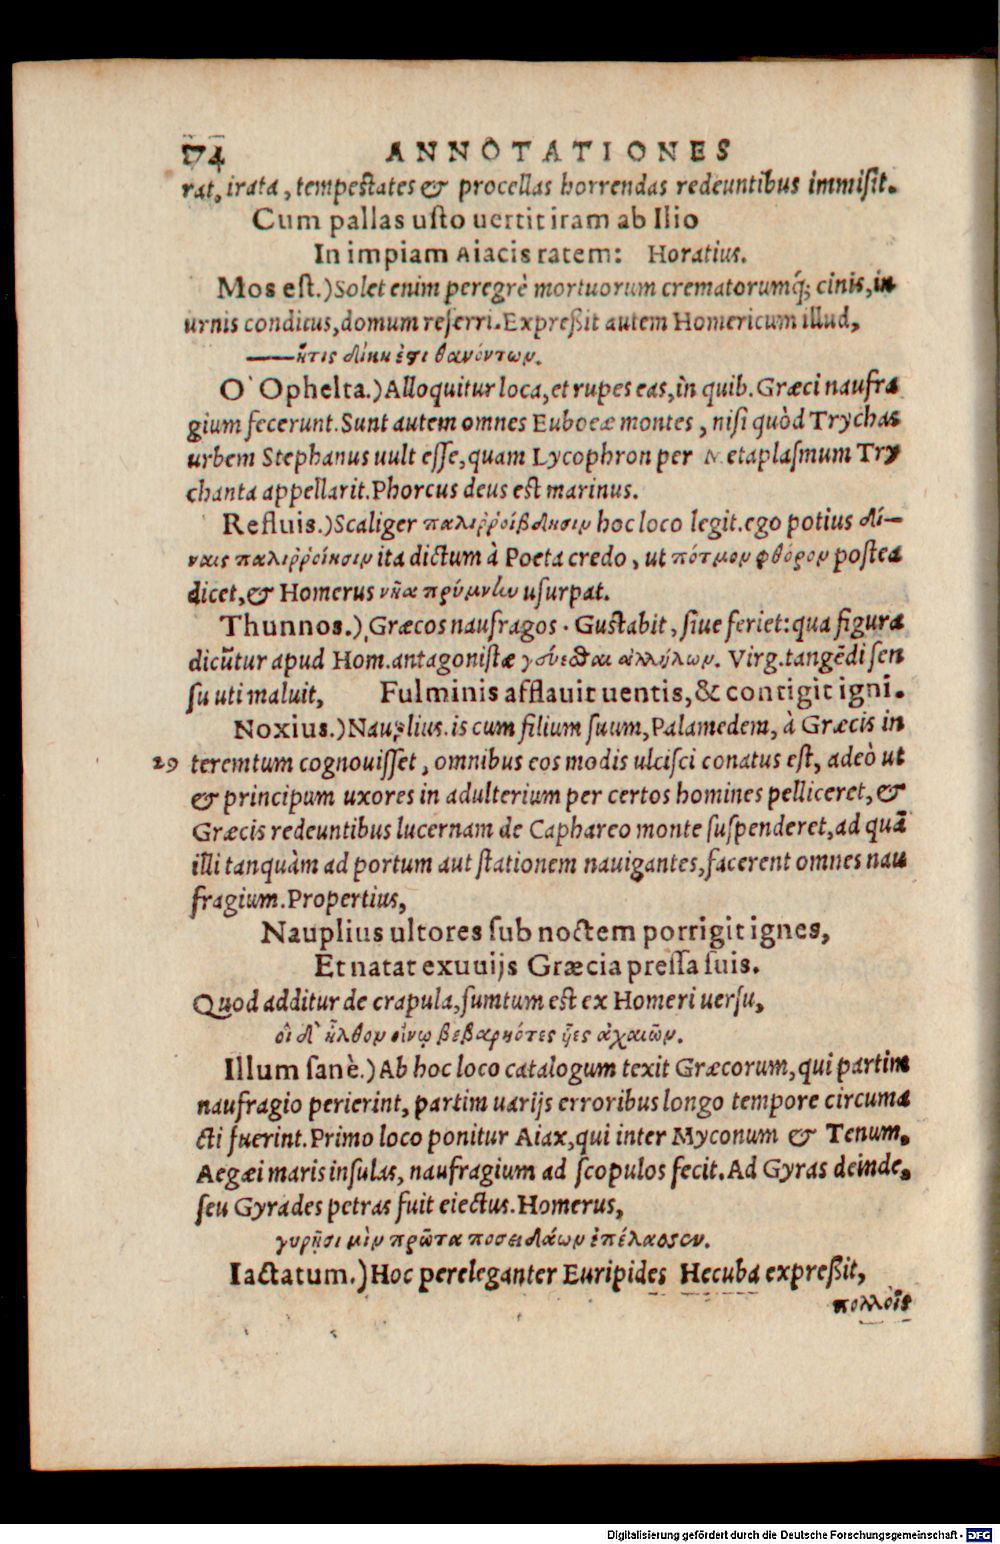 174 ANNOTATIONES
rat, irata, tempestates & procellas horrendas redeuntibus immisit.
Cum pallas usto uertit iram ab Ilio
In impiam Aiacis ratem: Horatius.
Mos est.) Solet enim peregrè mortuorum crematorumq́; cinis, in
urnis conditus, domum referri. Expreßit autem Homericum illud,
——ἥτις δίκη ἐστὶ θανόντων.
O' Ophelta.) Alloquitur loca, et rupes eas, in quib. Græci naufra
gium fecerunt. Sunt autem omnes Eubœæ montes, nisi quòd Trychas
urbem Stephanus uult esse, quam Lycophron per Metaplasmum Try
chanta appellarit. Phorcus deus est marinus.
Refluis.) Scaliger παλιῤῥοίβδησιν hoc loco legit. ego potius δί—
ναις παλιῤῥοίησιν ita dictum à Poeta credo, ut πότμον φθόρον postea
dicet, & Homerus νῆα πρύμνην usurpat.
Thunnos.) Græcos naufragos. Gustabit, siue feriet: qua figura
dicũtur apud Hom. antagonistæ γεύεσθαι ἀλλήλων. Virg. tangẽdi sen
su uti maluit, Fulminis afflauit uentis, & contigit igni.
Noxius.) Nauplius. is cum filium suum, Palamedem, à Græcis in
29 teremtum cognouisset, omnibus eos modis ulcisci conatus est, adeò ut
& principum uxores in adulterium per certos homines pelliceret, &
Græcis redeuntibus lucernam de Caphareo monte suspenderet, ad quã
illi tanquàm ad portum aut stationem nauigantes, facerent omnes nau
fragium. Propertius,
Nauplius ultores sub noctem porrigit ignes,
Et natat exuuijs Græcia pressa suis.
Quod additur de crapula, sumtum est ex Homeri uersu,
οἱ δ' ἦλθον οἴνῳ βεβαρηότες ἧες ἀχαιῶν.
Illum sanè.) Ab hoc loco catalogum texit Græcorum, qui partim
naufragio perierint, partim uarijs erroribus longo tempore circuma
cti fuerint. Primo loco ponitur Aiax, qui inter Myconum & Tenum,
Aegæi maris insulas, naufragium ad scopulos fecit. Ad Gyras deinde,
seu Gyrades petras fuit eiectus. Homerus,
γυρῇσι μὲν πρῶτα ποσειδάων ἐπέλασσεν.
Iactatum.) Hoc pereleganter Euripides Hecuba expreßit,
πολλοῖς
Digitalisierung gefördert durch die Deutsche Forschungsgemeinschaft - DFG